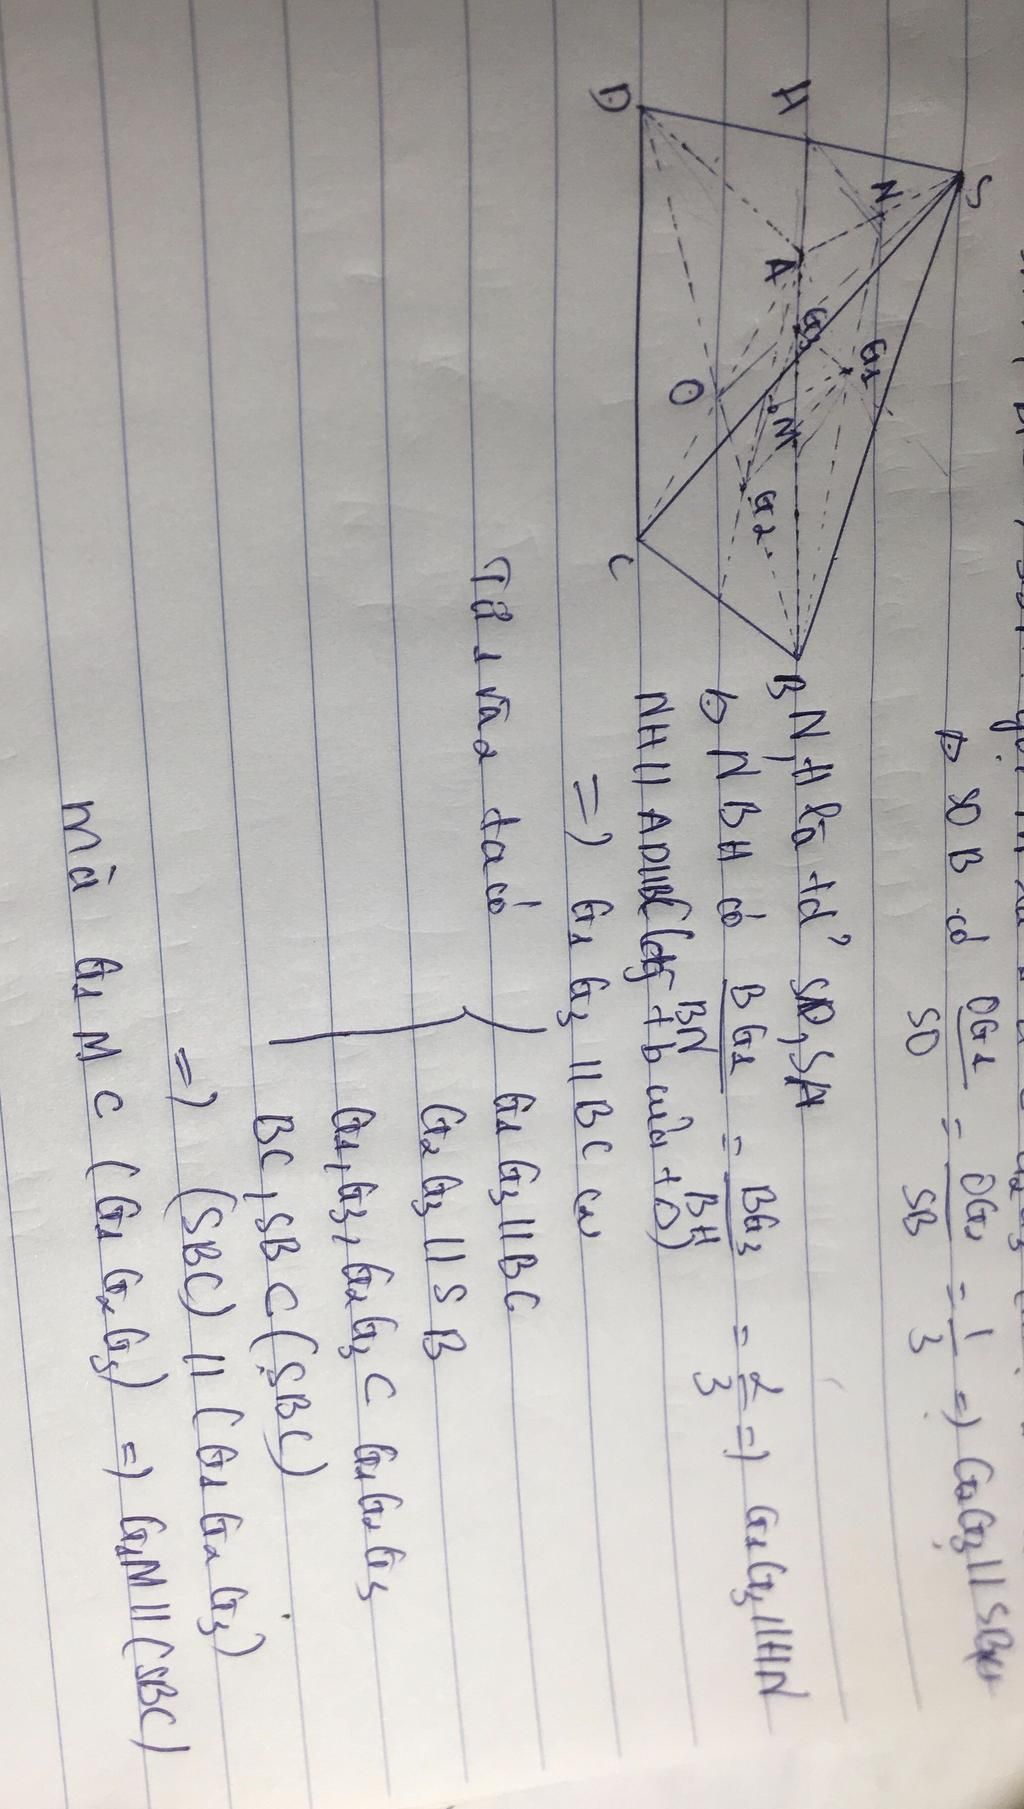 S
H
N
D
A
G3
G1
O
M
G2
C
B
Δ SOB có OG2/SO = OG3/SB = 1/3 => G2G3 // SB
N, H là tđ' SD, SA
Δ NBH có BG1/BN = BG3/BH = 2/3 => G1G3 // HN
NH // AD // BC (đg tb của tΔ)
=> G1G3 // BC
Từ 1 và 2 ta có
G1G3 // BC
G2G3 // SB
G1, G3, G2G3 ⊂ G1G2G3
BC, SB ⊂ (SBC)
=> (SBC) // (G1G2G3)
mà G1M ⊂ (G1G2G3) => G1M // (SBC)